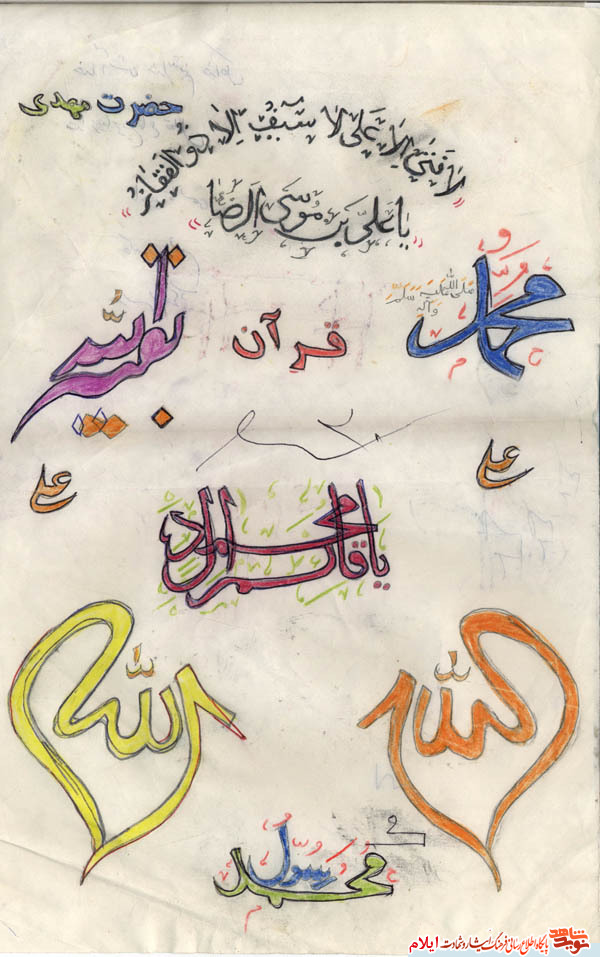 حضرت مهدی
لا فتی إلا علی لا سیف إلا ذوالفقار
"یا علی بن موسی الرضا"
محمد
صلی الله علیه و آله و سلم
قرآن
علی
علی
یا قائم آل محمد
الله
الله
محمد رسول
نوید شاهد
پایگاه اطلاع رسانی فرهنگ ایثار و شهادت ایلام